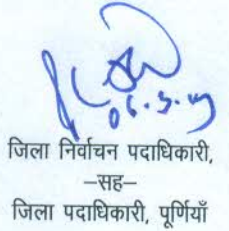 06.3.19
जिला निर्वाचन पदाधिकारी,
–सह–
जिला पदाधिकारी, पूर्णियाँ